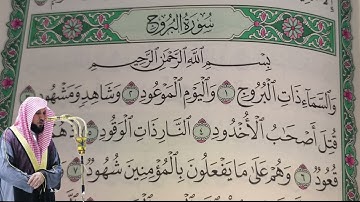 سُورَةُ البُرُوجِ
بِسْمِ ٱللَّهِ ٱلرَّحْمَٰنِ ٱلرَّحِيمِ
وَٱلسَّمَآءِ ذَاتِ ٱلْبُرُوجِ ١ وَٱلْيَوْمِ ٱلْمَوْعُودِ ٢ وَشَاهِدٍ وَمَشْهُودٍ
قُتِلَ أَصْحَٰبُ ٱلْأُخْدُودِ ٤ ٱلنَّارِ ذَاتِ ٱلْوَقُودِ ٥
قُعُودٌ ٦ وَهُمْ عَلَىٰ مَا يَفْعَلُونَ بِٱلْمُؤْمِنِينَ شُهُودٌ ٧